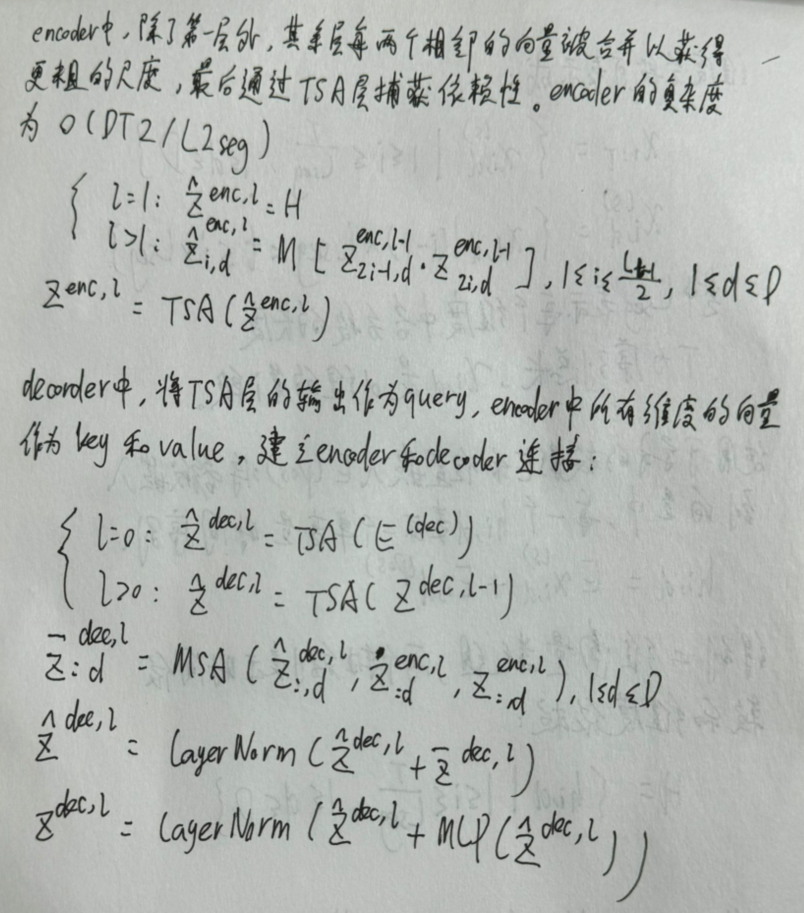 encoder中，除了第一层外，其余层每两个相邻的向量被合并以获得
更粗的尺度，最后通过TSA层捕获依赖性。encoder的复杂度
为 O(DT2/L2seg)
l=1: ẑ^{enc,l} = H
l>1: ẑ_{i,d}^{enc,l} = M [ z_{2i-1,d}^{enc,l-1} · z_{2i,d}^{enc,l-1} ], 1≤i≤ /2, 1≤d≤D
z^{enc,l} = TSA(ẑ^{enc,l})
decorder中，将TSA层的输出作为query，encoder中所有维度的向量
作为key和value，建立encoder和decoder连接：
l=0: ẑ^{dec,l} = TSA(E^{(dec)})
l>0: ẑ^{dec,l} = TSA(z^{dec,l-1})
z̄_{:d}^{dec,l} = MSA(ẑ_{:,d}^{dec,l}, z_{:d}^{enc,l}, z_{:,d}^{enc,l}), 1≤d≤D
ẑ^{dec,l} = LayerNorm(ẑ^{dec,l} + z̄^{dec,l})
z^{dec,l} = LayerNorm(ẑ^{dec,l} + MLP(ẑ^{dec,l}))